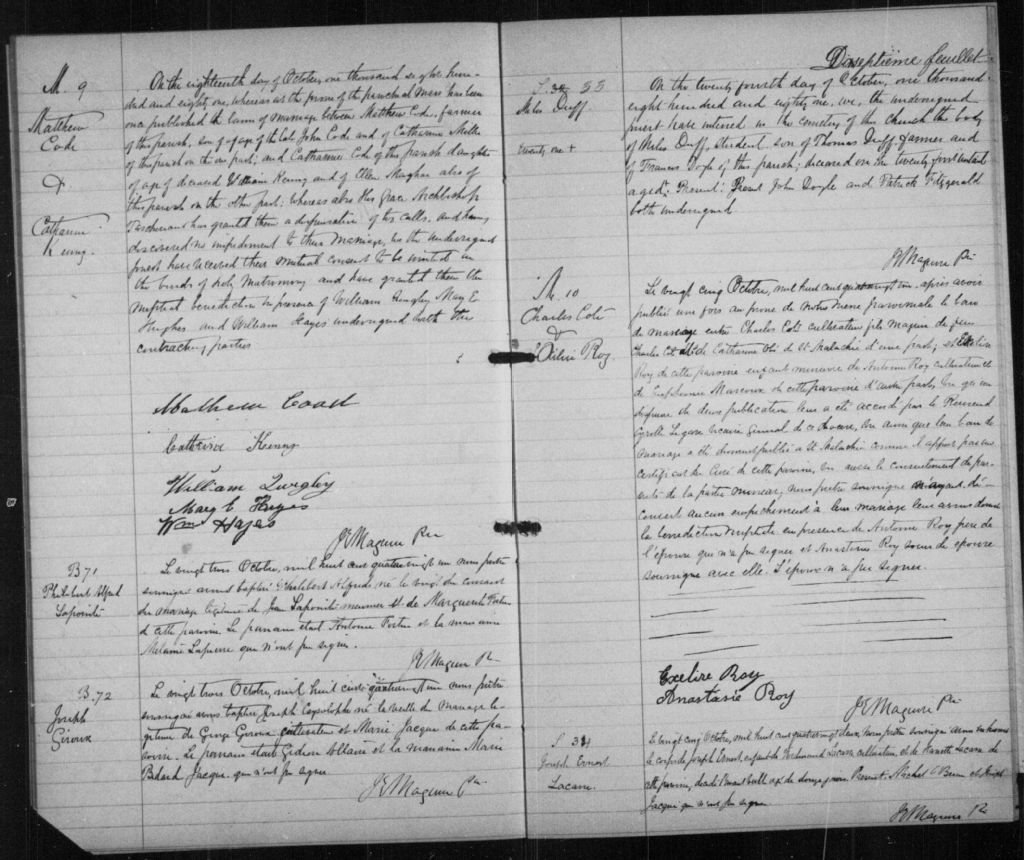 M. 9
Matthew
Code
&
Catharine
Kenny.
On the eighteenth day of October, one thousand eight hun-
dred and eighty one, whereas at the prone of the parochial Mass has been
once published the banns of marriage between Matthew Code, farmer
of this parish, son of age of the late John Code and of Catharine
of this parish on the one part; and Catharine of this parish daughter
of age of deceased William Kenny and of Ellen Meagher also of
this parish on the other part: whereas also His Grace Archbishop
Taschereau has granted them a dispensation of two calls, and having
discovered no impediment to their marriage, we the undersigned
priest have received their mutual consent to be united in
the bonds of holy Matrimony and have granted them the
nuptial benediction in presence of William Mary E
Hughes and William Hayes undersigned with the
contracting parties
Mathew Coad
Catherine Kenny
William
Mary E Hughes
Wm Hayes
J E Maguire Ptr
B 71
Philibert Alfred
Laponité
Le vingt trois Octobre, mil huit cent quatre vingt un nous prêtre
soussigné avons baptisé Philibert Alfred né le vingt du courant
du mariage légitime de Jean Laponité meunier et de Marguerite Fortier
de cette paroisse. Le parrain était Antoine Fortier et la marraine
Mélanie Lapierre qui n'ont pu signer.
J E Maguire Ptr
B. 72
Joseph
Giroux
Le vingt trois Octobre, mil huit cent quatre un nous prêtre
soussigné avons baptisé Joseph né la veille du mariage lé-
gitime de George Giroux cultivateur et Marie Jacques de cette pa-
roisse. Le parrain était Gédéon et la marraine Marie
Jacques qui n'ont pu signer
J E Maguire Ptr
Dixseptième feuillet
S. 33
Miles Duff
twenty one +
On the twenty fourth day of October, one thousand
eight hundred and eighty one, we, the undersigned
priest have interred in the cemetery of this church the body
of Miles Duff, student, son of Thomas Duff farmer and
of Frances Doyle of this parish; deceased on the twenty first instant
aged +. Present: Present John Doyle and Patrick Fitzgerald
both undersigned
J E Maguire Ptr
M. 10
Charles Coté
&
Roy.
Le vingt cinq Octobre, mil huit cent quatrevingt un, après avoir
publié une fois au prone de notre Messe paroissiale le ban
de mariage entre Charles Coté cultivateur fils majeur de feu
Charles Coté et de Catharine de St Malachie d'une part; et
Roy de cette paroisse enfant mineure de Antoine Roy cultivateur et
de Marcoux de cette paroisse d'autre part, vu que un
dispense de deux publication leur a été accordé par le Révérend
Cyrille Légaré Vicaire Général de ce diocèse, vu aussi que leur ban de
mariage a été publié a St Malachie comme il appert par un
certificat du Curé de cette paroisse, vu aussi le consentement de par-
ents de la partie mineure, nous prêtre soussigné n'ayant dé-
couvert aucun empêchement à leur mariage leur avons donné
la bénédiction nuptiale en présence de Antoine Roy père de
l'épouse qui n'a pu signer et Anastasie Roy soeur de épouse
soussigné avec elle. L'époux n'a pu signer.
Exelire Roy
Anastasie Roy
J E Maguire Ptr
S 34
Joseph Ernest
Lacasse.
Le vingt cinq Octobre, mil huit cent quatrevingt deux, nous prêtre soussigné avons inhumé
le corps de Joseph Ernest, enfant de Ferdinand Lacasse cultivateur, et de Lacasse de
cette paroisse, décédé agé de douze jours. Present: Michel O'Brien et Joseph
Jacques qui n'ont pu signer
J E Maguire Ptr